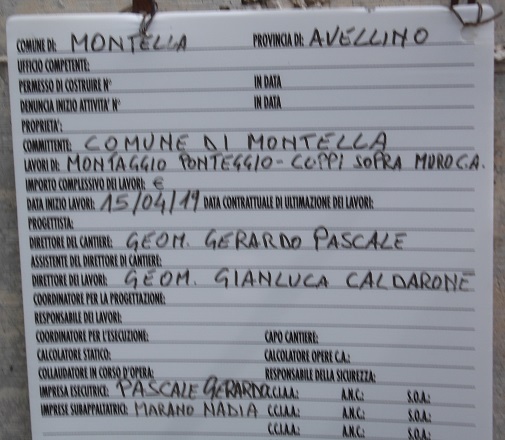 COMUNE DI: MONTELLA PROVINCIA DI: AVELLINO
UFFICIO COMPETENTE:
PERMESSO DI COSTRUIRE N° IN DATA
DENUNCIA INIZIO ATTIVITA' N° IN DATA
PROPRIETA':
COMMITTENTE: COMUNE DI MONTELLA
LAVORI DI: MONTAGGIO PONTEGGIO - COPPI SOPRA MURO C.A.
IMPORTO COMPLESSIVO DEI LAVORI: €
DATA INIZIO LAVORI: 15/04/19 DATA CONTRATTUALE DI ULTIMAZIONE DEI LAVORI:
PROGETTISTA:
DIRETTORE DEL CANTIERE: GEOM. GERARDO PASCALE
ASSISTENTE DEL DIRETTORE DI CANTIERE:
DIRETTORE DEI LAVORI: GEOM. GIANLUCA CALDARONE
COORDINATORE PER LA PROGETTAZIONE:
RESPONSABILE DEI LAVORI:
COORDINATORE PER L'ESECUZIONE: CAPO CANTIERE:
CALCOLATORE STATICO: CALCOLATORE OPERE C.A.:
COLLAUDATORE IN CORSO D'OPERA: RESPONSABILE DELLA SICUREZZA:
IMPRESA ESECUTRICE: PASCALE GERARDO C.C.I.A.A.: A.N.C.: S.O.A.:
IMPRESE SUBAPPALTATRICI: MARANO NADIA C.C.I.A.A.: A.N.C.: S.O.A.:
C.C.I.A.A.: A.N.C.: S.O.A.: